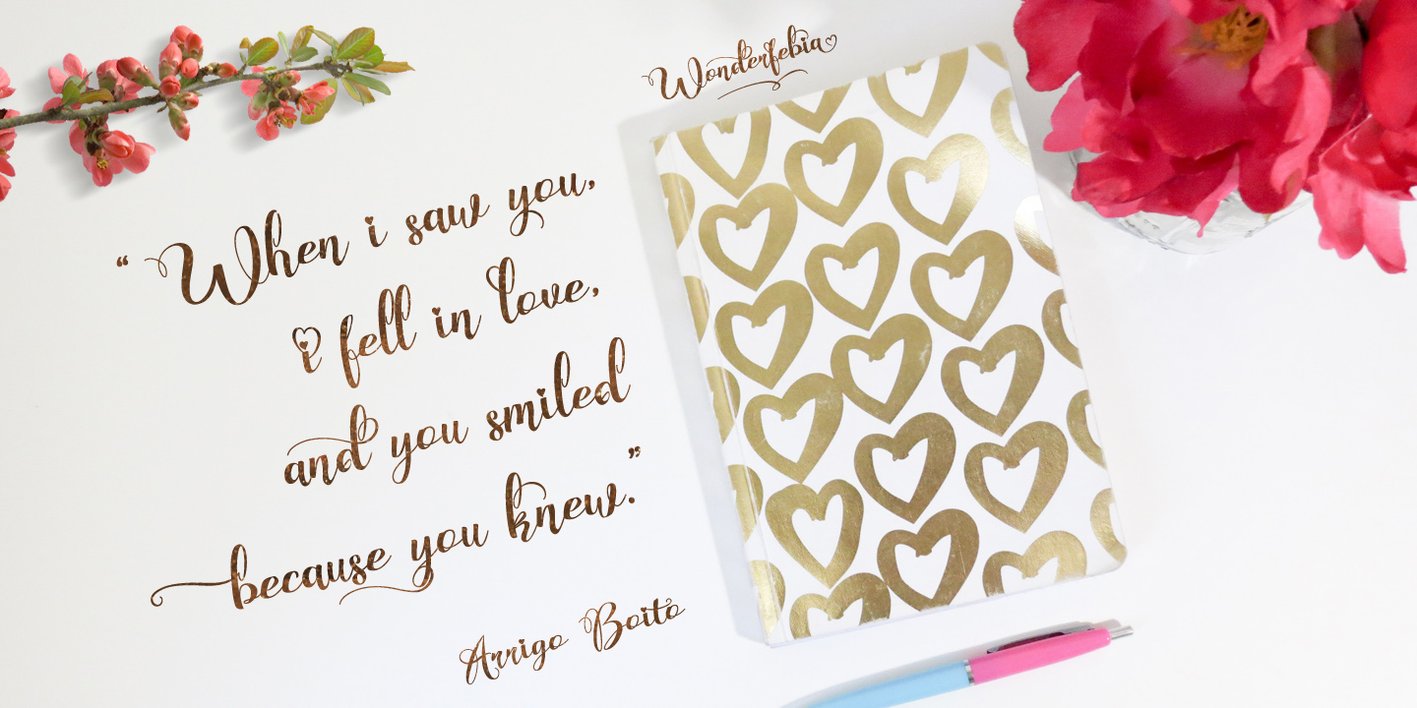 Wonderfebia
“ When i saw you,
i fell in love,
and you smiled
because you knew.”
Arrigo Boito